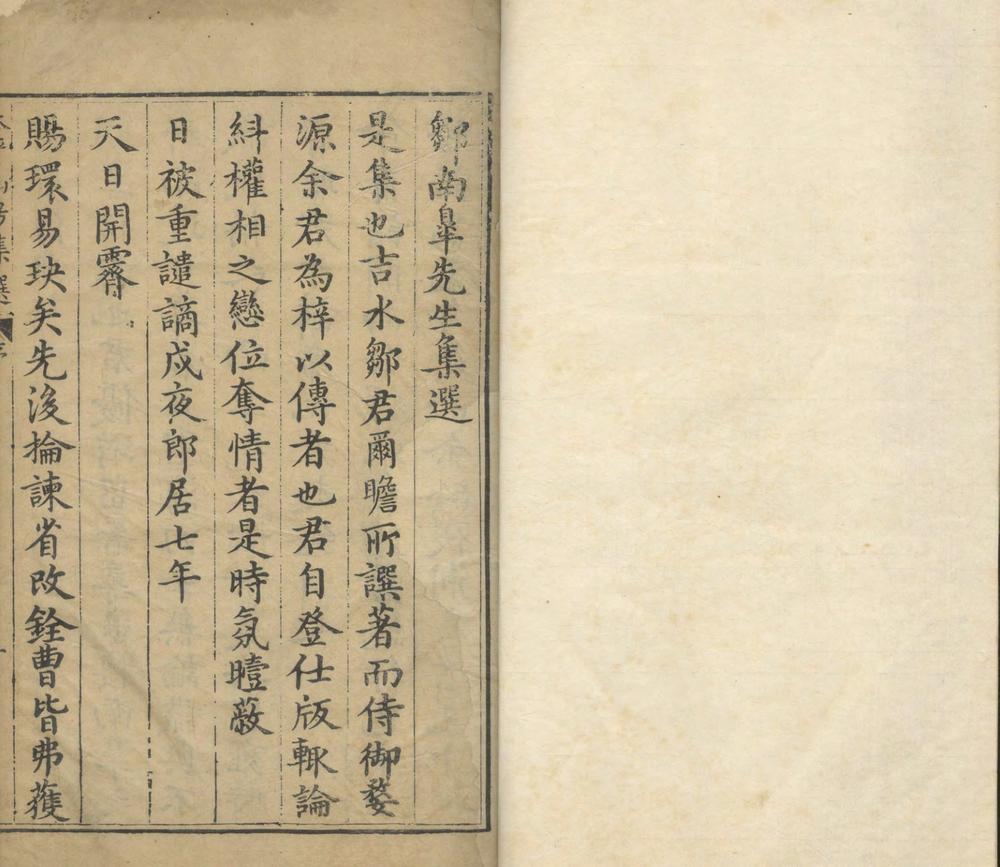 鄒南臯先生集選
是集也吉水鄒君爾瞻所譔著而侍御婺
源余君為梓以傳者也君自登仕版輒論
糾權相之戀位奪情者是時氛曀蔽
日被重譴謫戍夜郎居七年
天日開霽
賜環易玦矣先後掄諫省改銓曹皆弗獲
集選